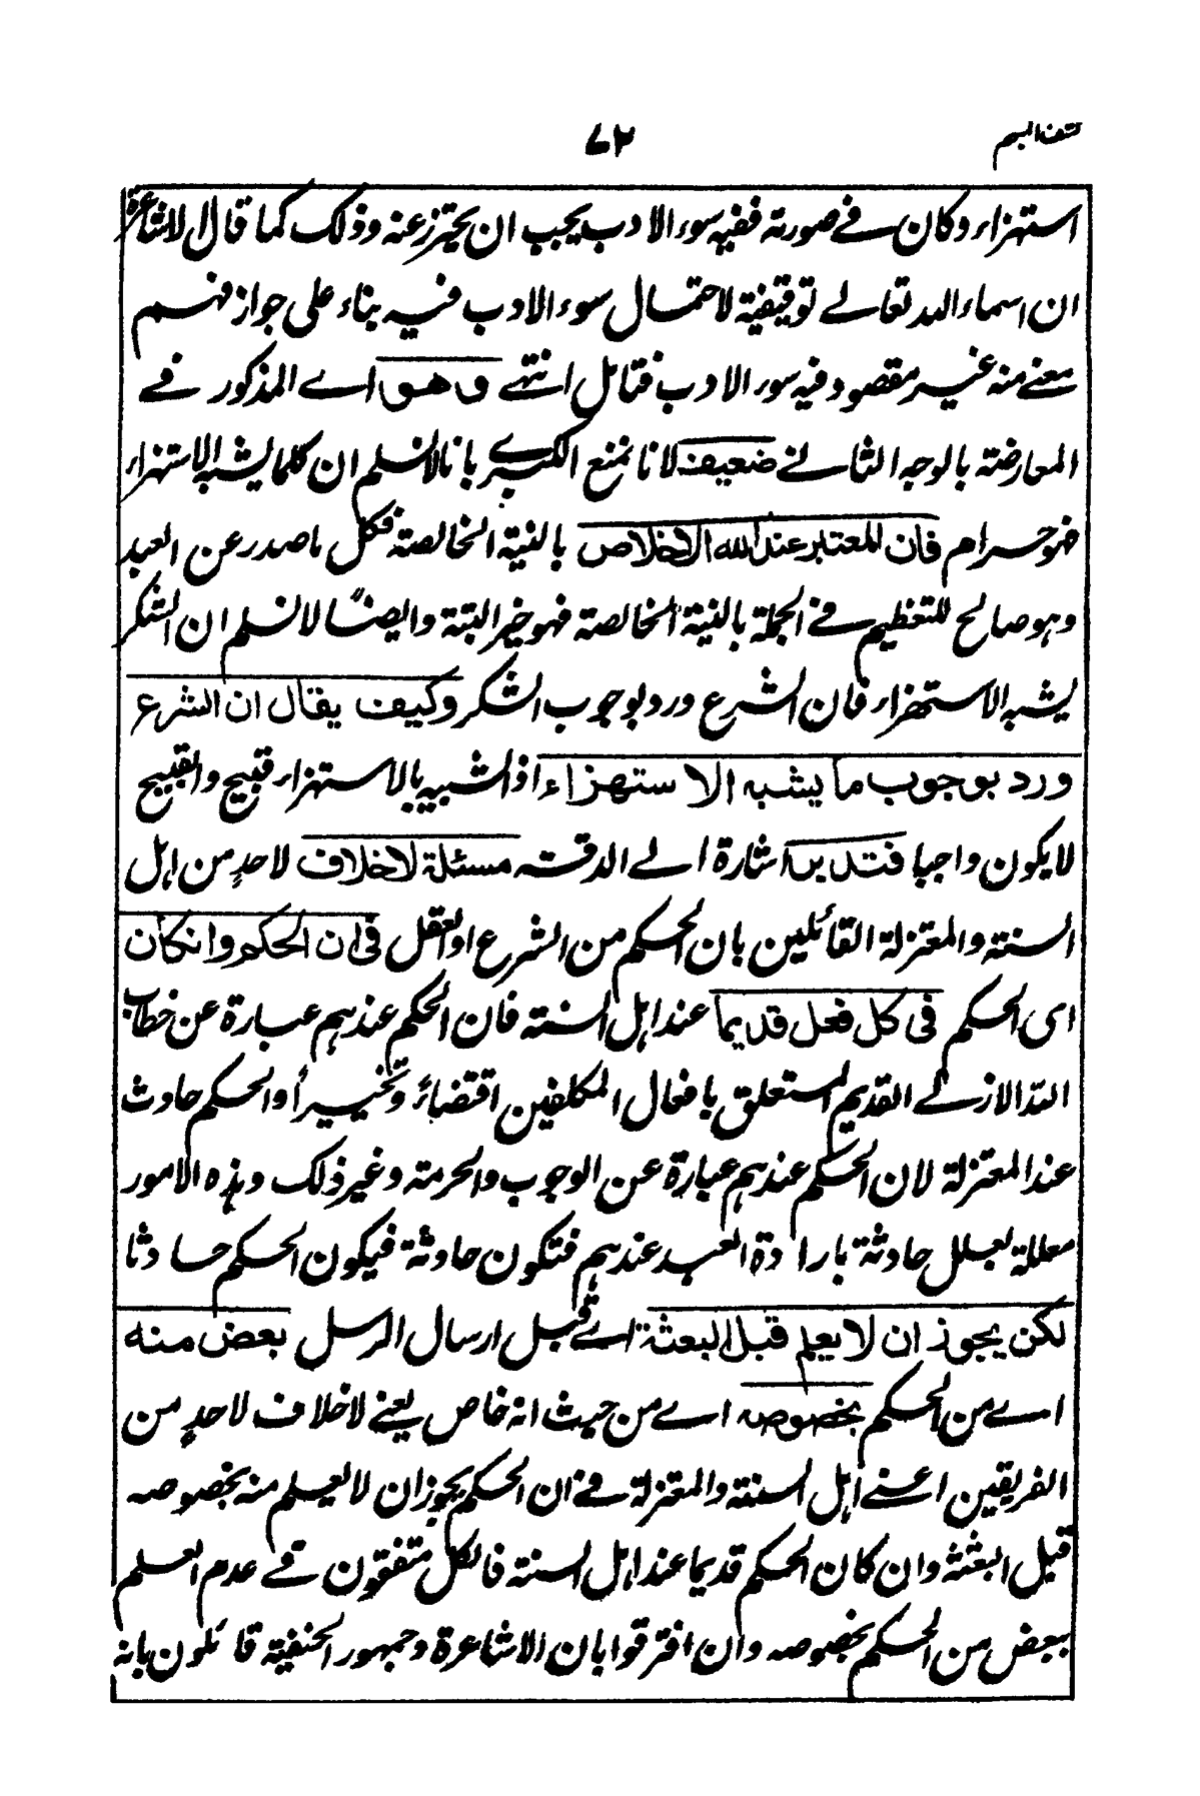 كشف المبهم
٧٢
استهزاء وكان في صورته ففيه سوء الادب يجب ان يحترز عنه وذلك كما قال الاشاعرة
ان اسماء الله تعالى توقيفية لاحتمال سوء الادب فيه بناء على جواز فهم
معنى منه غير مقصود فيه سوء الادب فتامل انتهى وهو اے المذكور في
المعارضة بالوجه الثاني ضعيف لانا نمنع الكبرى بانا لا نسلم ان كلما يشبه الاستهزاء
فهو حرام فان المعتبر عند الله الاخلاص بالنية الخالصة فكل ما صدر عن العبد
وهو صالح للتعظيم في الجملة بالنية الخالصة فهو خير البتة وايضًا لا نسلم ان الشكر
يشبه الاستهزاء فان الشرع ورد بوجوب الشكر وكيف يقال ان الشرع
ورد بوجوب ما يشبه الاستهزاء اذ الشبيه بالاستهزاء قبيح والقبيح
لا يكون واجبا فتدبر اشارة الى الدقة مسئلة لا خلاف لاحدٍ من اهل
السنة والمعتزلة القائلين بان الحكم من الشرع او العقل فى ان الحكم وان كان
اى الحكم فى كل فعل قديما عند اهل السنة فان الحكم عندهم عبارة عن خطاب
الله الازلي القديم المتعلق بافعال المكلفين اقتضاءً وتخييرًا والحكم حادث
عند المعتزلة لان الحكم عندهم عبارة عن الوجوب والحرمة وغير ذلك وهذه الامور
معللة بعلل حادثة بارادة العبد عندهم فتكون حادثة فيكون الحكم حادثا
لكن يجوز ان لا يعلم قبل البعثة اے قبل ارسال الرسل بعض منه
اے من الحكم بخصوصه اے من حيث انه خاص يعني لا خلاف لاحدٍ من
الفريقين اعني اهل السنة والمعتزلة في ان الحكم يجوز ان لا يعلم منه بخصوصه
قبل البعثة وان كان الحكم قديما عند اهل السنة فالكل متفقون في عدم العلم
ببعض من الحكم بخصوصه وان افترقوا بان الاشاعرة وجمهور الحنفية قائلون بانه